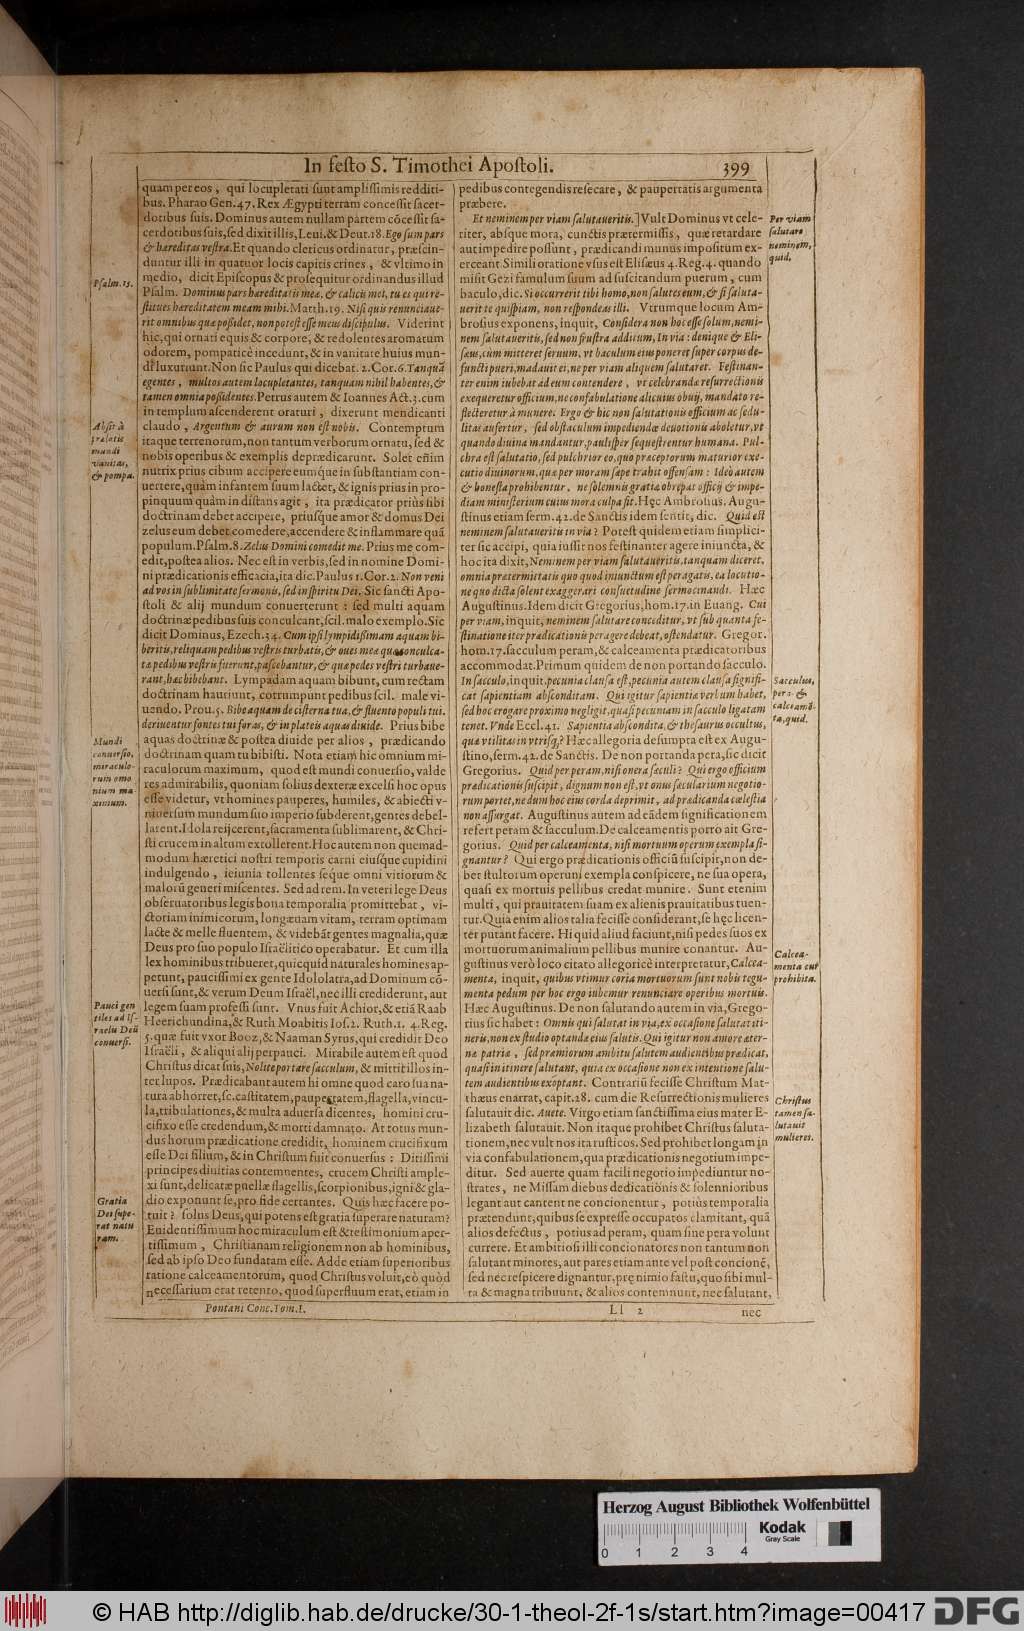 In festo S. Timothei Apostoli. 399
quam per eos, qui locupletati sunt amplissimis redditi-
bus. Pharao Gen. 47. Rex Ægypti terram concessit sacer-
dotibus suis. Dominus autem nullam partem cōcessit sa-
cerdotibus suis, sed dixit illis, Leui. & Deut. 18. Ego sum pars
& hæreditas vestra. Et quando clericus ordinatur, præscin-
duntur illi in quatuor locis capitis crines, & vltimo in
medio, dicit Episcopus & prosequitur ordinandus illud
Psalm. Dominus pars hæreditatis meæ, & calicis mei, tu es qui re-
stitues hæreditatem meam mihi. Matth. 19. Nisi quis renunciaue-
rit omnibus quæ possidet, non potest esse meus discipulus. Viderint
hic, qui ornati equis & corpore, & redolentes aromatum
odorem, pompaticè incedunt, & in vanitate huius mun-
di luxuriunt. Non sic Paulus qui dicebat. 2. Cor. 6. Tanquā
egentes, multos autem locupletantes, tanquam nihil habentes, &
tamen omnia possidentes. Petrus autem & Ioannes Act. 3. cum
in templum ascenderent oraturi, dixerunt mendicanti
claudo, Argentum & aurum non est nobis. Contemptum
itaque terrenorum, non tantum verborum ornatu, sed &
nobis operibus & exemplis deprædicarunt. Solet enim
nutrix prius cibum accipere eumque in substantiam con-
uertere, quàm infantem suum lactet, & ignis prius in pro-
pinquum quàm in distans agit, ita prædicator priùs sibi
doctrinam debet accipere, priusque amor & domus Dei
zelus eum debet comedere, accendere & inflammare quā
populum. Psalm. 8. Zelus Domini comedit me. Prius me com-
edit, postea alios. Nec est in verbis, sed in nomine Domi-
ni prædicationis efficacia, ita dic. Paulus 1. Cor. 2. Non veni
ad vos in sublimitate sermonis, sed in spiritu Dei. Sic sancti Apo-
stoli & alij mundum conuerterunt : sed multi aquam
doctrinæ pedibus suis conculcant, scil. malo exemplo. Sic
dicit Dominus, Ezech. 34. Cum ipsi lympidissimam aquam bi-
beritis, reliquam pedibus vestris turbatis, & oues meæ quæ conculca-
tæ pedibus vestris fuerunt, pascebantur, & quæ pedes vestri turbaue-
rant, hæc bibebant. Lympadam aquam bibunt, cum rectam
doctrinam hauriunt, corrumpunt pedibus scil. male vi-
uendo. Prou. 5. Bibe aquam de cisterna tua, & fluento populi tui.
deriuentur fontes tui foras, & in plateis aquas diuide. Prius bibe
aquas doctrinæ & postea diuide per alios, prædicando
doctrinam quam tu bibisti. Nota etiam hic omnium mi-
raculorum maximum, quod est mundi conuersio, valde
res admirabilis, quoniam solius dexteræ excelsi hoc opus
esse videtur, vt homines pauperes, humiles, & abiecti v-
niuersum mundum suo imperio subderent, gentes debel-
larent. Idola reijcerent, sacramenta sublimarent, & Chri-
sti crucem in altum extollerent. Hoc autem non quemad-
modum hæretici nostri temporis carni eiusque cupidini
indulgendo, ieiunia tollentes seque omni vitiorum &
malorū generi miscentes. Sed ad rem. In veteri lege Deus
obseruatoribus legis bona temporalia promittebat, vi-
ctoriam inimicorum, longæuam vitam, terram optimam
lacte & melle fluentem, & videbāt gentes magnalia, quæ
Deus pro suo populo Israëlitico operabatur. Et cum illa
lex hominibus tribueret, quicquid naturales homines ap-
petunt, paucissimi ex gente Idololatra, ad Dominum cō-
uersi sunt, & verum Deum Israël, nec illi crediderunt, aut
legem suam professi sunt. Vnus fuit Achior, & etiā Raab
Hoerichundina, & Ruth Moabitis Ios. 2. Ruth. 1. 4. Reg.
5. quæ fuit vxor Booz, & Naaman Syrus, qui credidit Deo
Israëli, & aliqui alij perpauci. Mirabile autem est quod
Christus dicat suis, Nolite portare sacculum, & mittit illos in-
ter lupos. Prædicabant autem hi omne quod caro sua na-
tura abhorret, sc. castitatem, paupertatem, flagella, vincu-
la, tribulationes, & multa aduersa dicentes, homini cru-
cifixo esse credendum, & morti damnato. At totus mun-
dus horum prædicatione credidit, hominem crucifixum
esse Dei filium, & in Christum fuit conuersus : Ditissimi
principes diuitias contemnentes, crucem Christi ample-
xi sunt, delicatæ puellæ flagellis, scorpionibus, igni & gla-
dio exponunt se, pro fide certantes. Quis hæc facere po-
tuit ? solus Deus, qui potens est gratia superare naturam?
Euidentissimum hoc miraculum est & testimonium aper-
tissimum, Christianam religionem non ab hominibus,
sed ab ipso Deo fundatam esse. Adde etiam superioribus
ratione calceamentorum, quod Christus voluit, eò quòd
necessarium erat retento, quod superfluum erat, etiam in
Psalm. 15.
Absit à
prælatis
mundi
vanitas,
& pompa.
Mundi
conuersio,
miraculo-
rum omo
nium ma-
ximum.
Pauci gen
tiles ad Is-
raelis Deū
conuersi.
Gratia
Dei supe-
rat natu
ram.
Pontani Conc. Tom. I.
pedibus contegendis resecare, & paupertatis argumenta
præbere.
Et neminem per viam salutaueritis.] Vult Dominus vt cele-
riter, absque mora, cunctis prætermissis, quæ retardare
aut impedire possunt, prædicandi munus impositum ex-
erceant. Simili oratione vsus est Elisæus 4. Reg. 4. quando
misit Gezi famulum suum ad suscitandum puerum, cum
baculo, dic. Si occurrerit tibi homo, non salutes eum, & si saluta-
uerit te quispiam, non respondeas illi. Vtrumque locum Am-
brosius exponens, inquit, Considera non hoc esse solum, nemi-
nem salutaueritis, sed non frustra additum, In via : denique & Eli-
sæus, cum mitteret seruum, vt baculum eius poneret super corpus de-
functi pueri, mādauit ei, ne per viam aliquem salutaret. Festinan-
ter enim iubebat ad eum contendere, vt celebrandæ resurrectionis
exequeretur officium, ne confabulatione alicuius obuij, mandato re-
flecteretur à munere. Ergo & hic non salutationis officium ac sedu-
litas aufertur, sed obstaculum impediendæ deuotionis aboletur, vt
quando diuina mandantur, paulisper sequestrentur humana. Pul-
chra est salutatio, sed pulchrior eo, quo præceptorum maturior exe-
cutio diuinorum, quæ per moram sæpe trahit offensam : Ideo autem
& honesta prohibentur, ne solemnis gratia obrepat officij & impe-
diam ministerium cuius mora culpa sit. Hęc Ambrosius. Augu-
stinus etiam serm. 42. de Sanctis idem sentit, dic. Quid est
neminem salutaueritis in via ? Potest quidem etiam simplici-
ter sic accipi, quia iussit nos festinanter agere iniuncta, &
hoc ita dixit, Neminem per viam salutaueritis, tanquam diceret,
omnia prætermittatis quo quod iniunctum est peragatis, ea locutio-
ne quo dicta solent exaggerari consuetudine sermocinandi. Hæc
Augustinus. Idem dicit Gregorius, hom. 17. in Euang. Cui
per viam, inquit, neminem salutare conceditur, vt sub quanta fe-
stinatione iter prædicationis peragere debeat, ostendatur. Gregor.
hom. 17. sacculum peram, & calceamenta prædicatoribus
accommodat. Primum quidem de non portando sacculo.
In sacculo, inquit, pecunia clausa est, pecunia autem clausa signifi-
cat sapientiam absconditam. Qui igitur sapientiæ verbum habet,
sed hoc erogare proximo negligit, quasi pecuniam in sacculo ligatam
tenet. Vnde Eccl. 41. Sapientia abscondita, & thesaurus occultus,
quæ vtilitas in vtrisq; ? Hæc allegoria desumpta est ex Augu-
stino, serm. 42. de Sanctis. De non portanda pera, sic dicit
Gregorius. Quid per peram, nisi onera sæculi ? Qui ergo officium
prædicationis suscipit, dignum non est, vt onus sæcularium negotio-
rum portet, ne dum hoc eius corda deprimit, ad prædicanda cœlestia
non assurgat. Augustinus autem ad eādem significationem
refert peram & sacculum. De calceamentis porro ait Gre-
gorius. Quid per calceamenta, nisi mortuum operum exempla si-
gnantur ? Qui ergo prædicationis officiū suscipit, non de-
bet stultorum operum exempla conspicere, ne sua opera,
quasi ex mortuis pellibus credat munire. Sunt etenim
multi, qui prauitatem suam ex alienis prauitatibus tuen-
tur. Quia enim alios talia fecisse considerant, se hęc licen-
ter putant facere. Hi quid aliud faciunt, nisi pedes suos ex
mortuorum animalium pellibus munire conantur. Au-
gustinus verò loco citato allegoricè interpretatur, Calcea-
menta, inquit, quibus vtimur coria mortuorum sunt nobis tegu-
menta pedum per hoc ergo iubemur renunciare operibus mortuis.
Hæc Augustinus. De non salutando autem in via, Grego-
rius sic habet : Omnis qui salutat in via, ex occasione salutat iti-
neris, non ex studio optandæ eius salutis. Qui igitur non amore æter-
næ patriæ, sed præmiorum ambitu salutem audientibus prædicat,
quasi in itinere salutant, quia ex occasione non ex intentione salu-
tem audientibus exoptant. Contrariū fecisse Christum Mat-
thæus enarrat, capit. 28. cum die Resurrectionis mulieres
salutauit dic. Auete. Virgo etiam sanctissima eius mater E-
lizabeth salutauit. Non itaque prohibet Christus saluta-
tionem, nec vult nos ita rusticos. Sed prohibet longam in
via confabulationem, qua prædicationis negotium impe-
ditur. Sed auerte quam facili negotio impediuntur no-
strates, ne Missam diebus dedicationis & solennioribus
legant aut cantent ne concionentur, potius temporalia
prætendunt, quibus se expresse occupatos clamitant, quā
alios defectus, potius ad peram, quam sine pera volunt
currere. Et ambitiosi illi concionatores non tantum non
salutant minores, aut pares etiam ante vel post concionē,
sed nec respicere dignantur, prę nimio fastu, quo sibi mul-
ta & magna tribuunt, & alios contemnunt, nec salutant,
Per viam
salutare
neminem,
quid.
Sacculus,
pera &
calceamē-
ta, quid.
Calcea-
menta cur
prohibita.
Christus
tamen sa-
lutauit
mulieres.
Ll 2 nec
Herzog August Bibliothek Wolfenbüttel
0 1 2 3 4
Kodak
Gray Scale
© HAB http://diglib.hab.de/drucke/30-1-theol-2f-1s/start.htm?image=00417
DFG